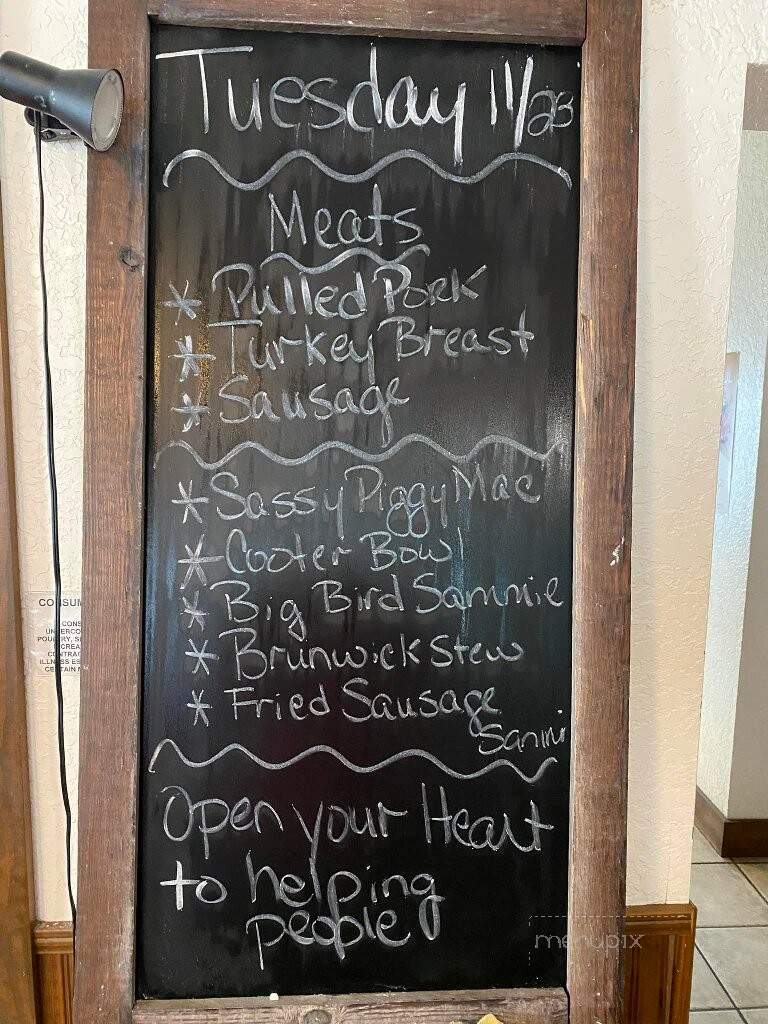 Tuesday 11/23
Meats
* Pulled Pork
* Turkey Breast
* Sausage
* Sassy Piggy Mac
* Cooter Bowl
* Big Bird Sammie
* Brunwick Stew
* Fried Sausage
Sammi
Open your Heart
to helping
people
CONSUM
CONS
UNDERCO
POULTRY, S
INCREA
CONTRAC
ILLNESS ES
CERTAIN M
menupix